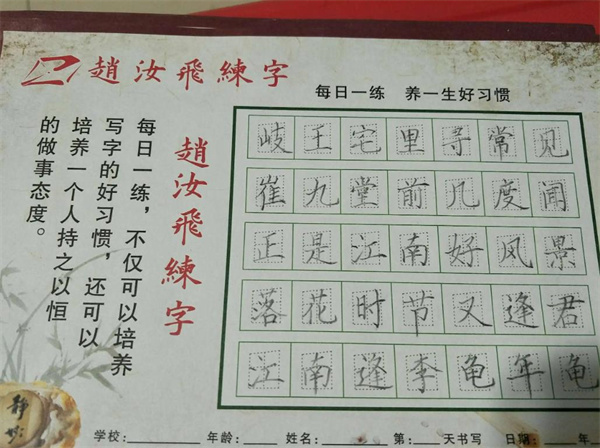 趙汝飛練字
每日一练 养一生好习惯
每日一练，不仅可以培养
写字的好习惯，还可以
培养一个人持之以恒
的做事态度。
趙汝飛練字
岐王宅里寻常见
崔九堂前几度闻
正是江南好风景
落花时节又逢君
江南逢李龟年龟
静
学校:________ 年龄:____ 姓名:________ 第:____天书写 日期:____年